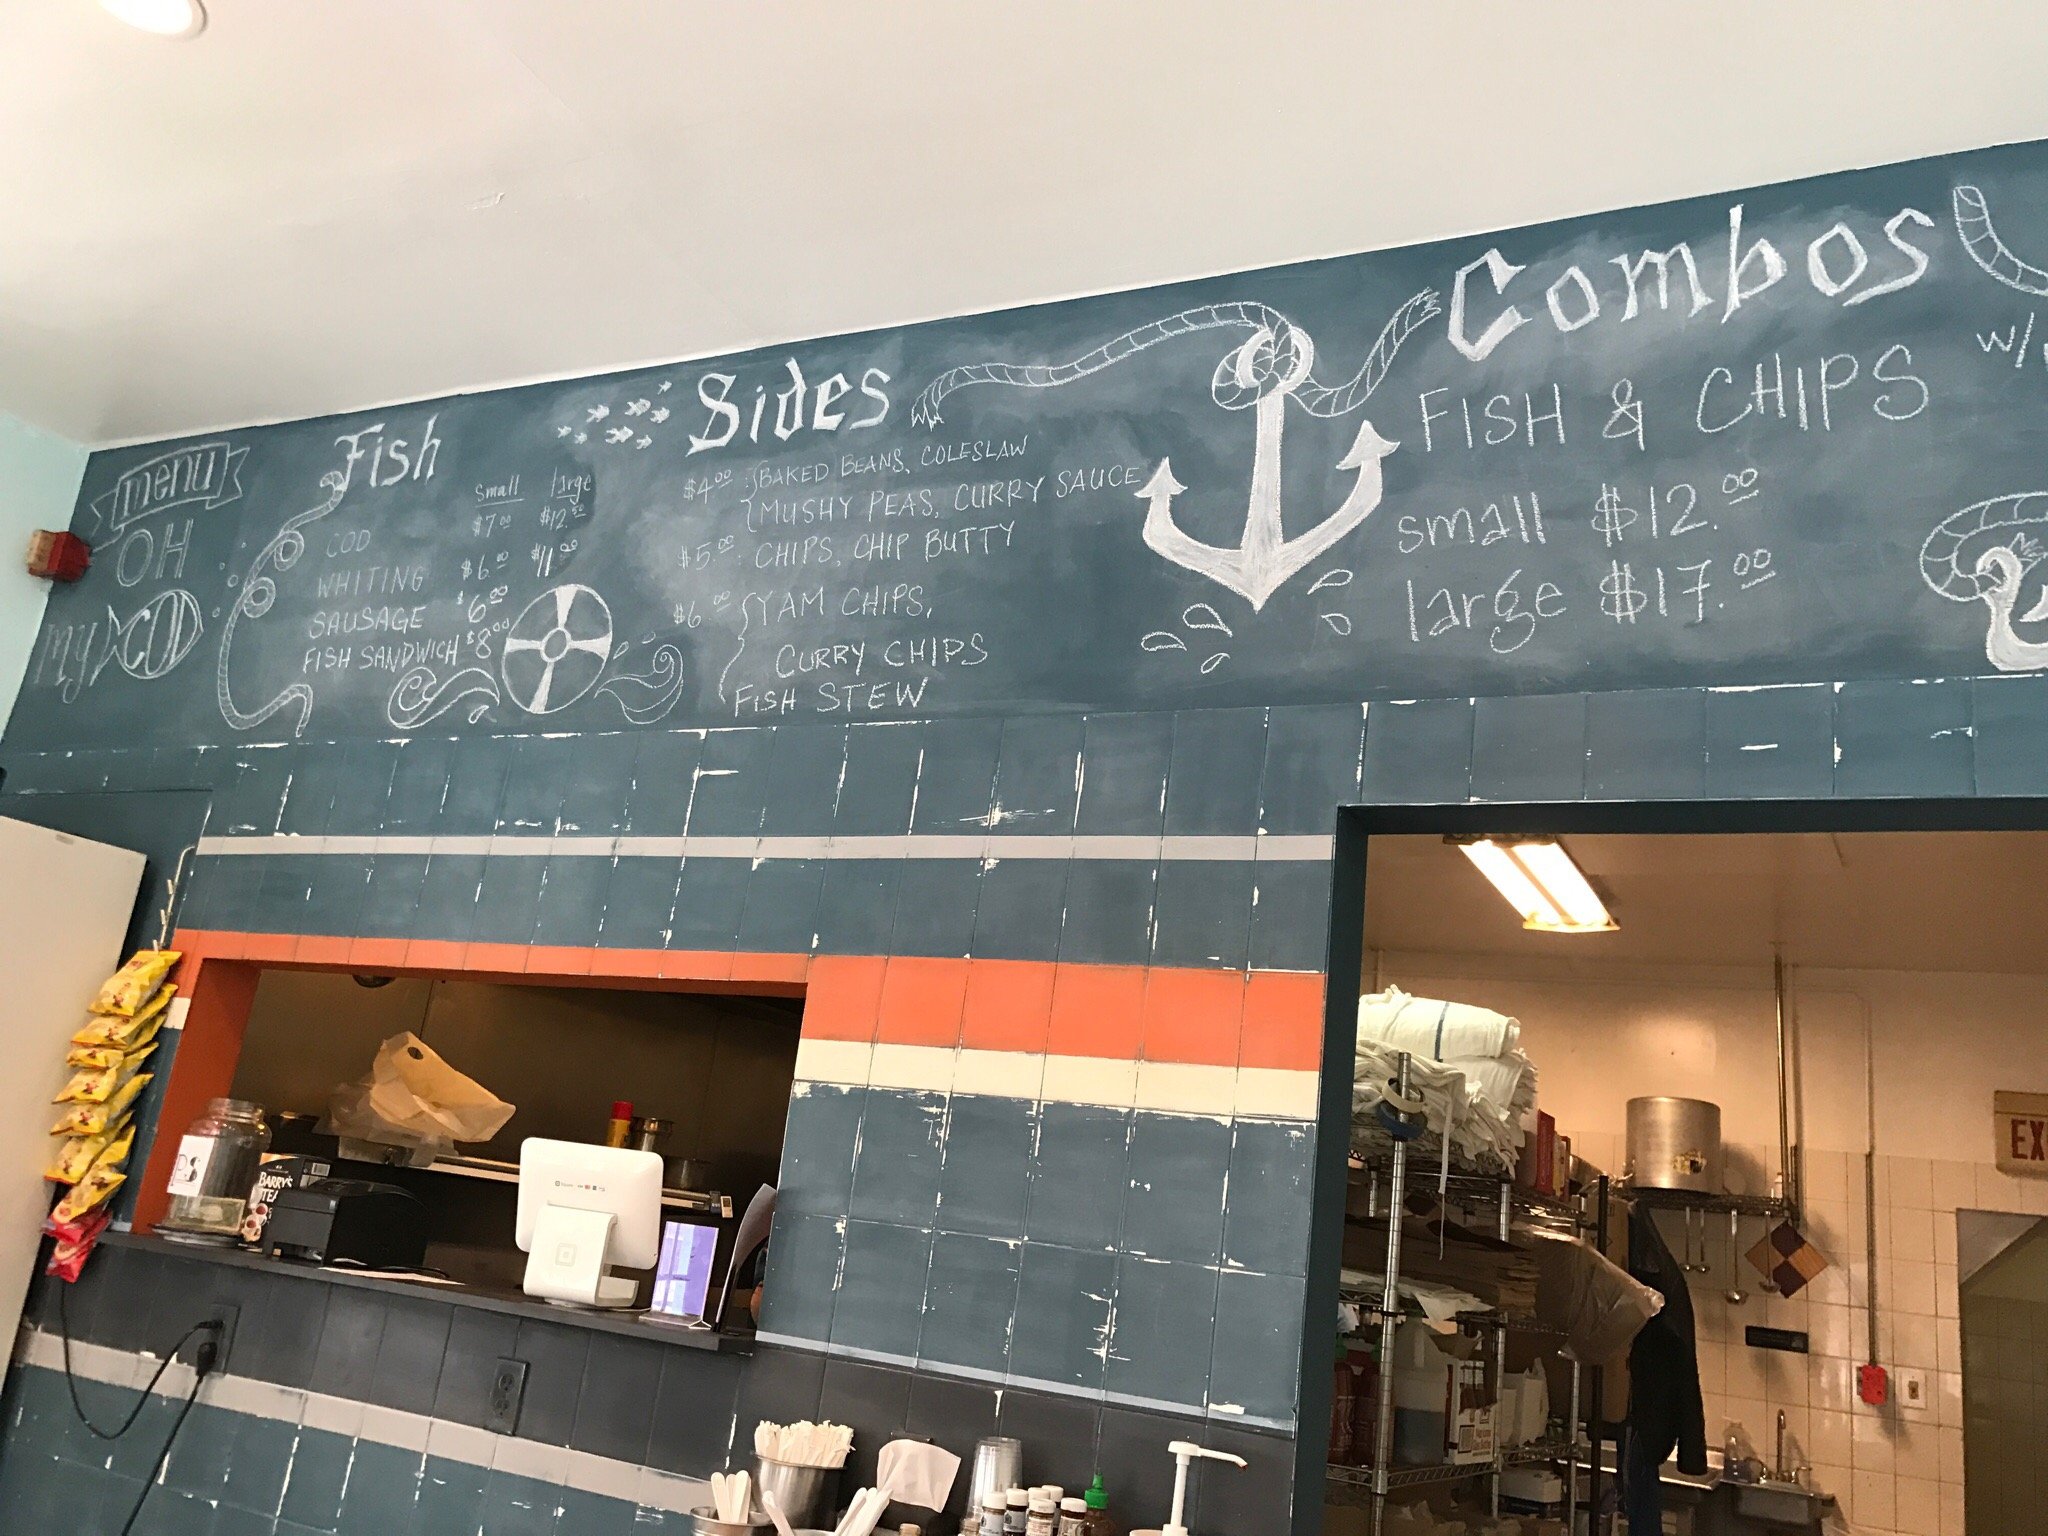 menu
OH
my COD
Fish
small large
COD $7.00 $12.00
WHITING $6.00 $11.00
SAUSAGE $6.00
FISH SANDWICH $8.00
Sides
$4.00 : { BAKED BEANS, COLESLAW
MUSHY PEAS, CURRY SAUCE
$5.00 : CHIPS, CHIP BUTTY
$6.00 { YAM CHIPS,
CURRY CHIPS
FISH STEW
Combos
FISH & CHIPS
w/
small $12.00
large $17.00
EX
BARRY'S
TEA